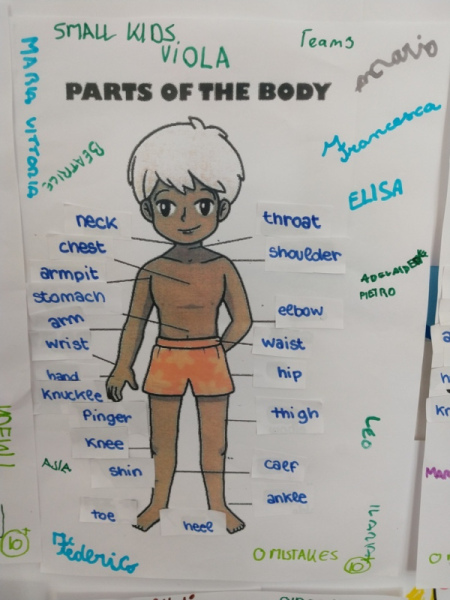 SMALL KIDS
VIOLA
Team 3
MARIA VITTORIA
PARTS OF THE BODY
BEATRICE
Francesca
ELISA
neck
throat
chest
shoulder
armpit
ADELAIDE
PIETRO
stomach
elbow
arm
wrist
waist
hand
hip
knuckle
Pinger
thigh
Knee
LEO
ASIA
shin
calf
ankle
toe
heel
Federico
0 MISTAKES
10
10+